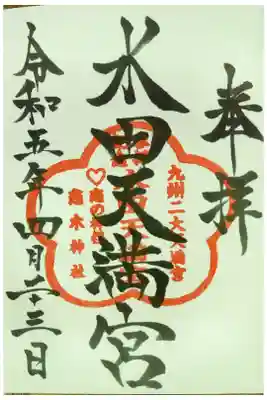 奉拝
九州二大天満宮
水田天満宮
恋木神社
令和五年四月二十三日